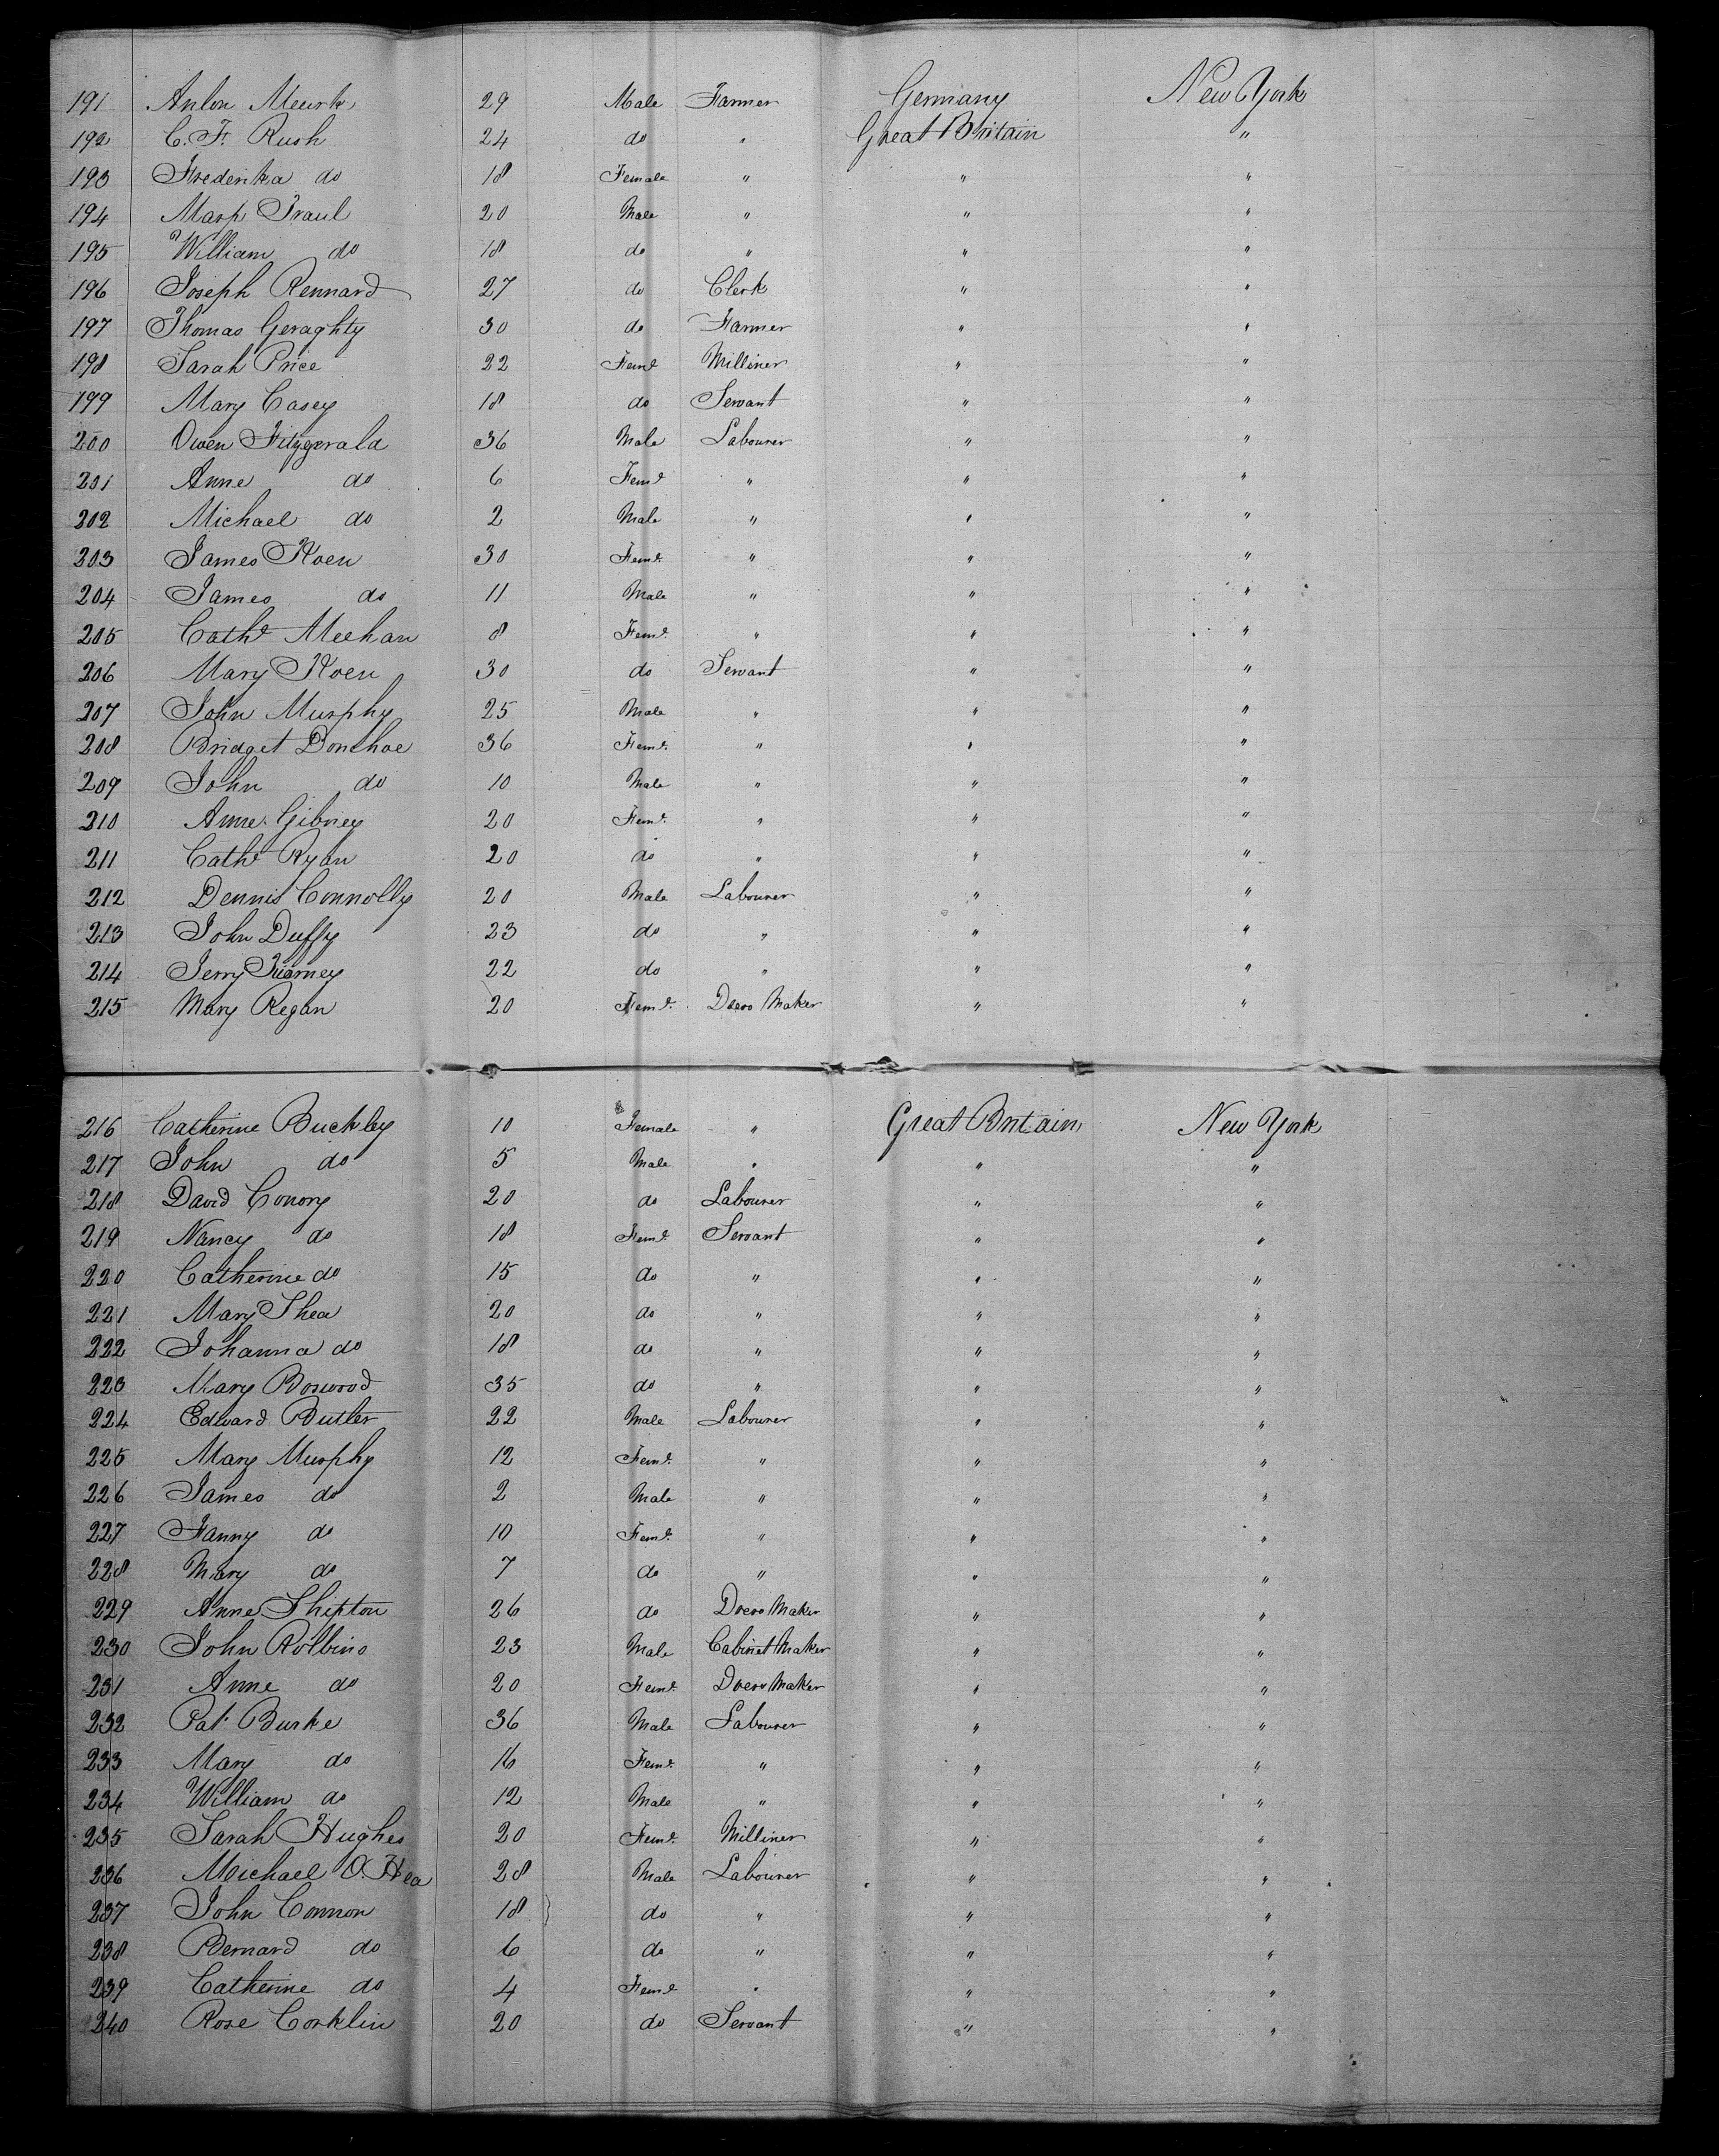 191 Anton Meurk 29 Male Farmer Germany New York
192 C. F. Rush 24 do " Great Britain "
193 Frederika do 18 Female " " "
194 Mark Traul 20 Male " " "
195 William do 18 do " " "
196 Joseph Rennard 27 do Clerk " "
197 Thomas Geraghty 30 do Farmer " "
198 Sarah Price 22 Feme Milliner " "
199 Mary Casey 18 do Servant " "
200 Owen Fitzgerald 36 Male Labourer " "
201 Anne do 6 Feme " " "
202 Michael do 2 Male " " "
203 James Koen 30 Feme " " "
204 James do 11 Male " " "
205 Cathe Meehan 8 Feme " " "
206 Mary Koen 30 do Servant " "
207 John Murphy 25 Male " " "
208 Bridget Donehoe 36 Feme " " "
209 John do 10 Male " " "
210 Anne Gibney 20 Feme " " "
211 Cathe Ryan 20 do " " "
212 Dennis Connolly 20 Male Labourer " "
213 John Duffy 23 do " " "
214 Jerry 22 do " " "
215 Mary Regan 20 Feme Dress Maker " "
216 Catherine Buckley 10 Female " Great Britain New York
217 John do 5 Male " " "
218 David Conory 20 do Labourer " "
219 Nancy do 18 Feme Servant " "
220 Catherine do 15 do " " "
221 Mary Shea 20 do " " "
222 Johanna do 18 do " " "
223 Mary Boswood 35 do " " "
224 Edward Butler 22 Male Labourer " "
225 Mary Murphy 12 Feme " " "
226 James do 2 Male " " "
227 Fanny do 10 Feme " " "
228 Mary do 7 do " " "
229 Anne Shipton 26 do Dress Maker " "
230 John Robbins 23 Male Cabinet Maker " "
231 Anne do 20 Feme Dress Maker " "
232 Pat. Burke 36 Male Labourer " "
233 Mary do 16 Feme " " "
234 William do 12 Male " " "
235 Sarah Hughes 20 Feme Milliner " "
236 Michael O. Hea 28 Male Labourer " "
237 John Connor 18 do " " "
238 Bernard do 6 do " " "
239 Catherine do 4 Feme " " "
240 Rose Corklin 20 do Servant " "